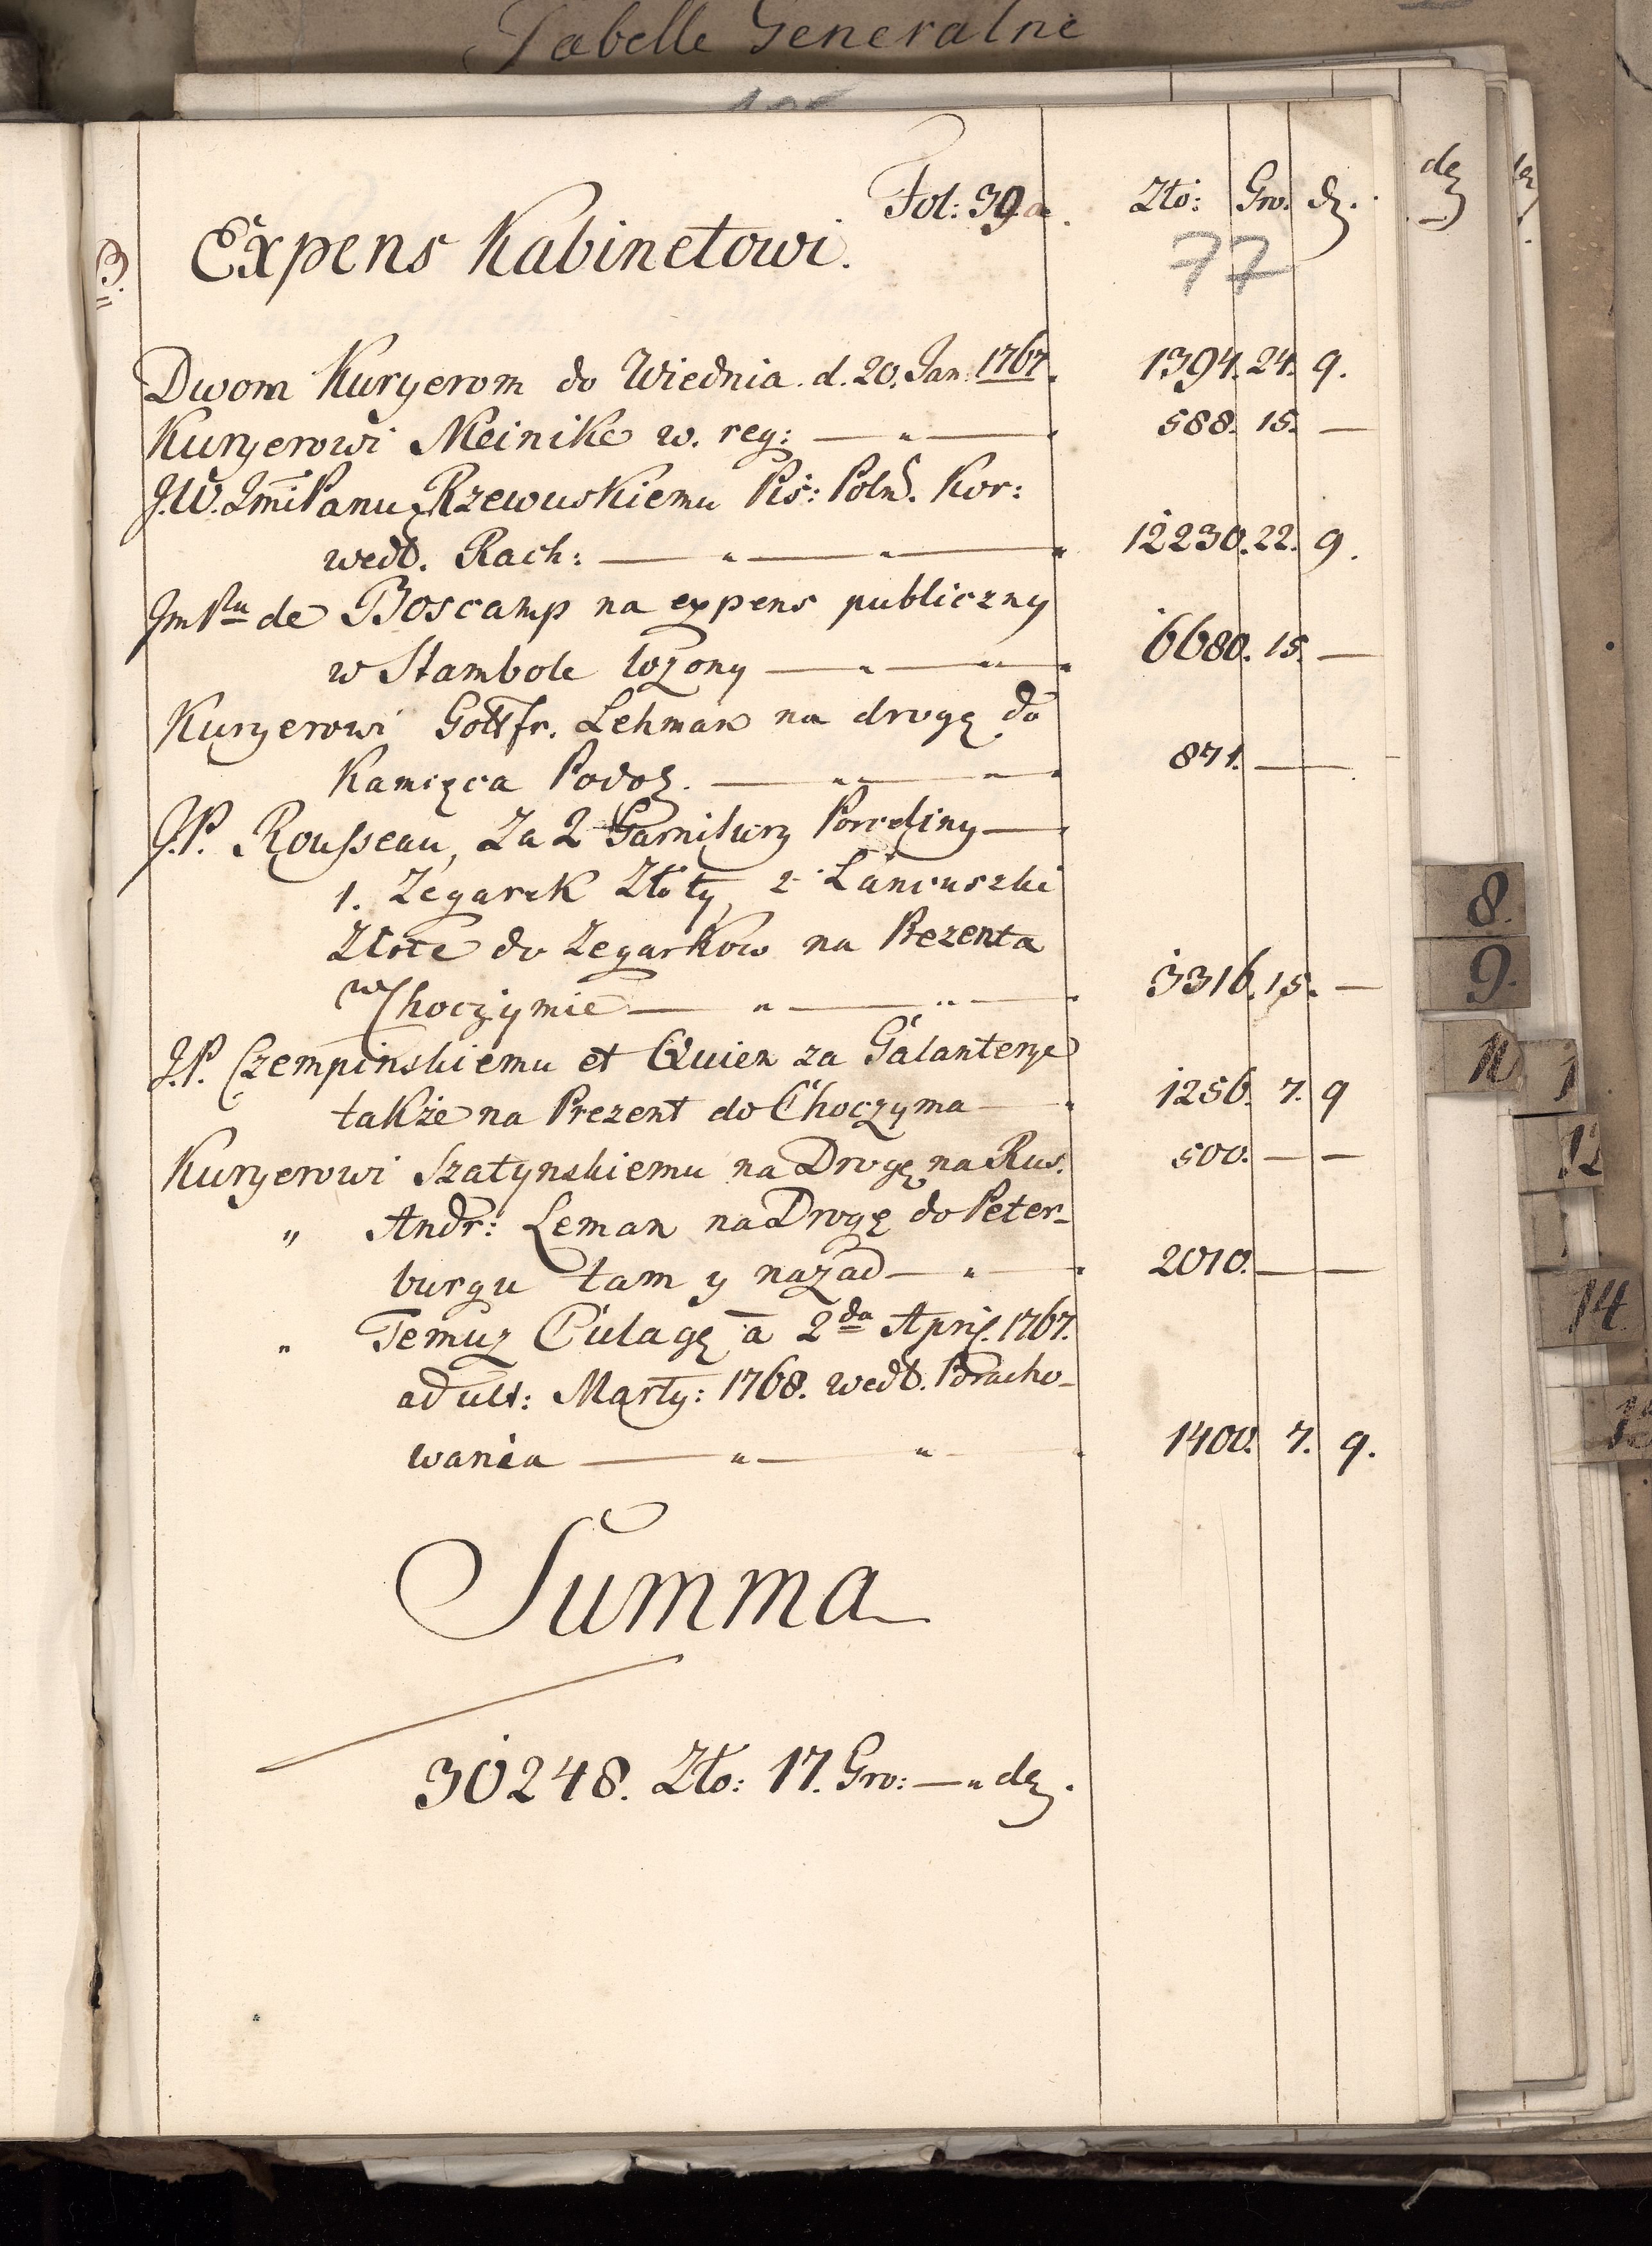 Tabelle Generalne
Fol: 39 a. Zło: Gro. d.
77
B.
Expens Kabinetowi.
Dwom Kuryerom do Wiednia. d. 20. Jan: 1767. 1394. 24. 9.
Kuryerowi Meinike w. reg: — " — 588. 15. —
J.W. Jmć Panu Rzewuskiemu Pis: Poln. Kor:
wedł. Rach: — " — " — 12230. 22. 9.
Jm Pu de Boscamp na expens publiczny
w Stambole łożony — " — " 6680. 15. —
Kuryerowi Gottfr. Lehman na drogę do
Kamieńca Podol. — " — " — 871. — —
J.P. Rousseau, Za 2 Garnitury Porceliny —
1. Zegarek Złoty, 2 Łancuszki
Złote do Zegarkow na Prezenta
w Choczymie — " — " — 3316. 15. —
J.P. Czempinskiemu et Quien za Galanterye
także na Prezent do Choczyma — 1256. 7. 9
Kuryerowi Szatynskiemu na Drogę na Rus. 500. — —
" Andr: Leman na Drogę do Peter-
burgu tam y nazad — " — 2010. — —
" Temuż Culagę a 2da April. 1767.
ad ult: Marty: 1768. wedł. Poracho-
wania — " — " — 1400. 7. 9.
Summa
30248. Zło: 17. Gro: — " d.
8.
9.
11
12
14